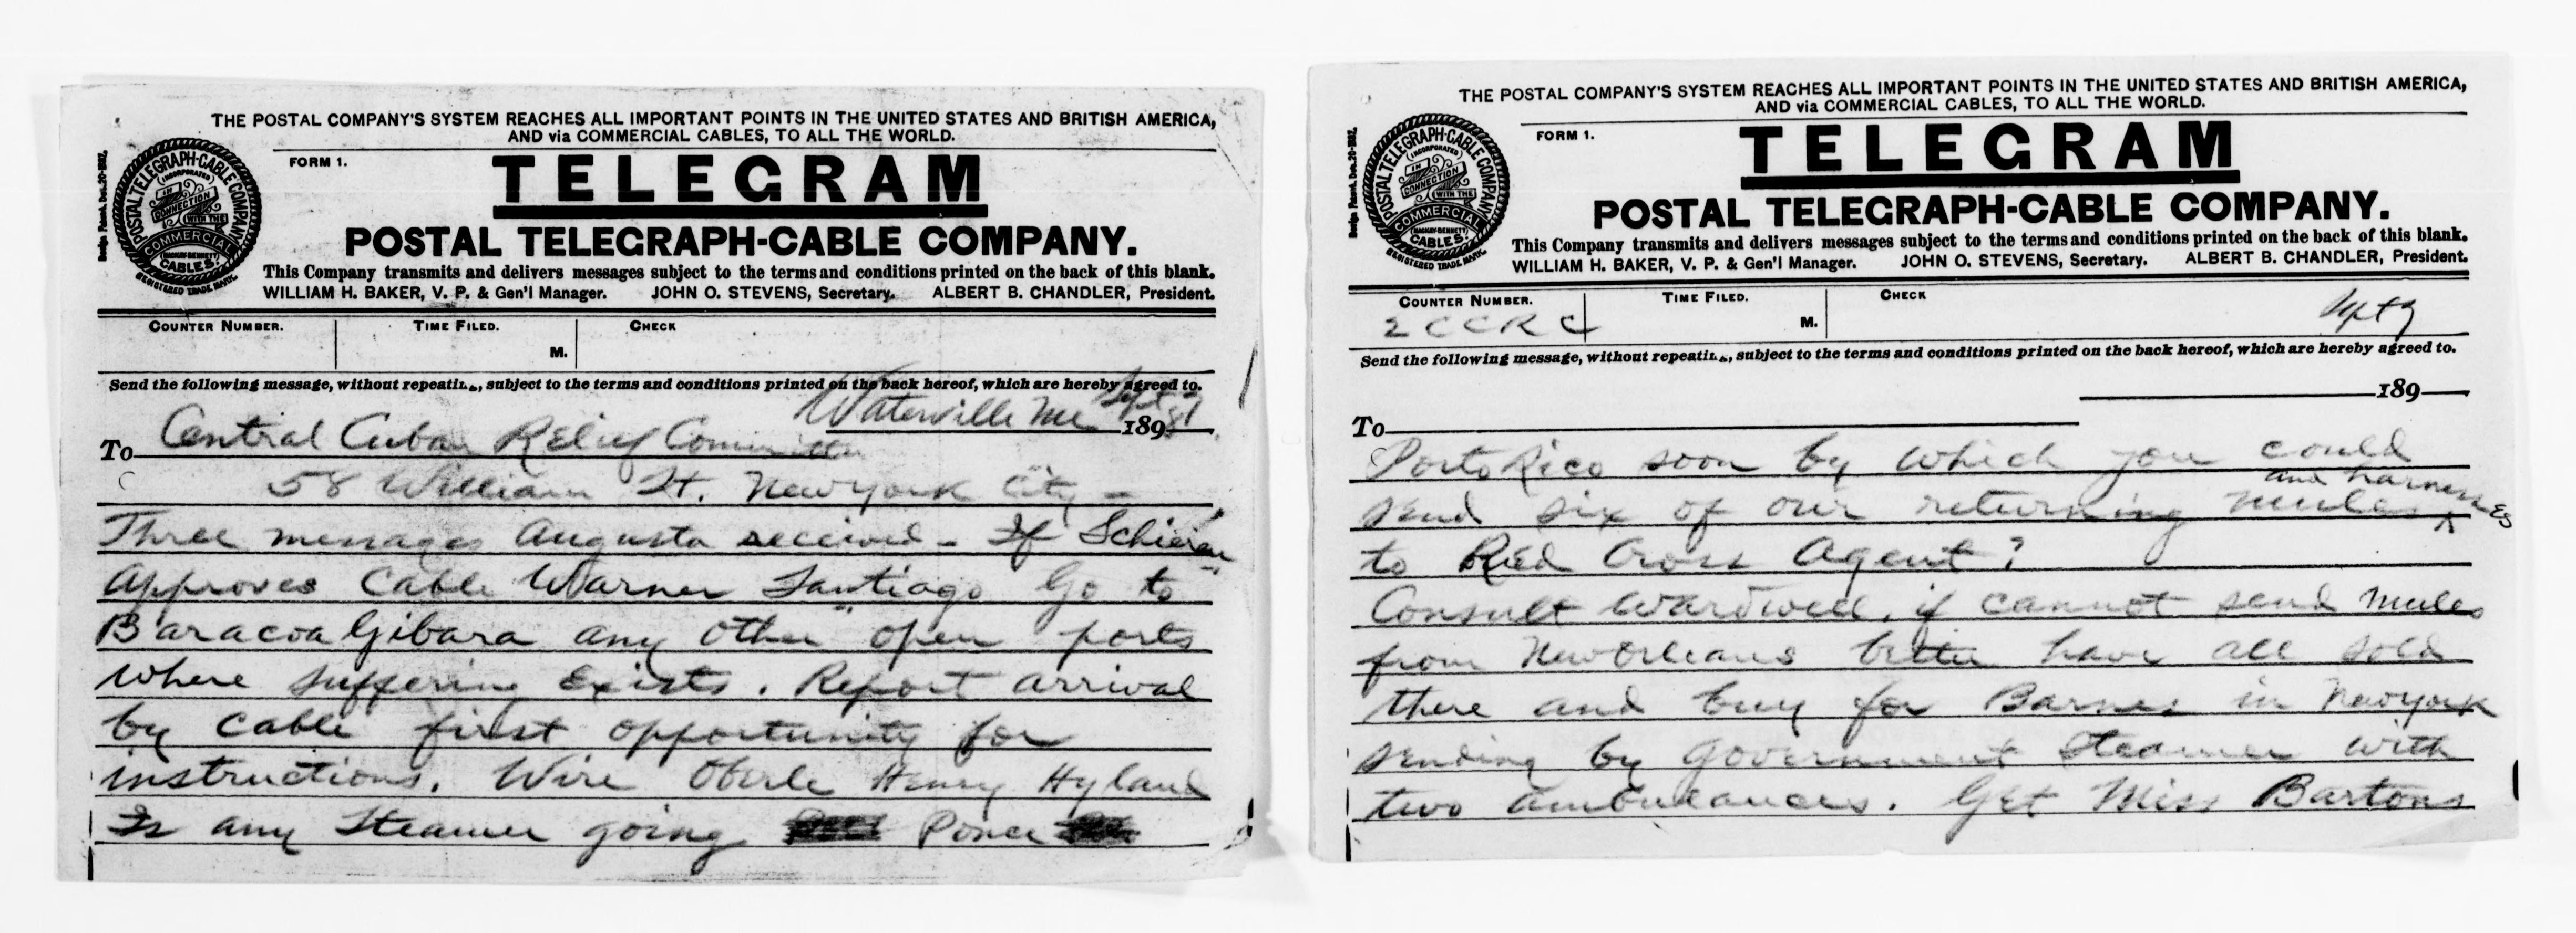 THE POSTAL COMPANY'S SYSTEM REACHES ALL IMPORTANT POINTS IN THE UNITED STATES AND BRITISH AMERICA,
AND via COMMERCIAL CABLES, TO ALL THE WORLD.
Design Patent. Dec. 20-892.
POSTAL TELEGRAPH-CABLE COMPANY
(INCORPORATED)
IN CONNECTION WITH THE
COMMERCIAL
(MACKAY-BENNETT)
CABLES.
REGISTERED TRADE MARK.
FORM 1.
TELEGRAM
POSTAL TELEGRAPH-CABLE COMPANY.
This Company transmits and delivers messages subject to the terms and conditions printed on the back of this blank.
WILLIAM H. BAKER, V. P. & Gen'l Manager. JOHN O. STEVENS, Secretary. ALBERT B. CHANDLER, President.
COUNTER NUMBER. TIME FILED. CHECK
M.
Send the following message, without repeating, subject to the terms and conditions printed on the back hereof, which are hereby agreed to.
Waterville Me Sept
1898
To Central Cuban Relief Committee
58 William St. New York City -
Three messages Augusta received - If Schieren
approves Cable Warner Santiago "Go to
Baracoa Gibara any other open ports
where suffering Exists. Report arrival
by cable first opportunity for
instructions. Wire Oberle Henry Hyland
Is any Steamer going Ponce
THE POSTAL COMPANY'S SYSTEM REACHES ALL IMPORTANT POINTS IN THE UNITED STATES AND BRITISH AMERICA,
AND via COMMERCIAL CABLES, TO ALL THE WORLD.
Design Patent. Dec. 20-892.
POSTAL TELEGRAPH-CABLE COMPANY
(INCORPORATED)
IN CONNECTION WITH THE
COMMERCIAL
(MACKAY-BENNETT)
CABLES.
REGISTERED TRADE MARK.
FORM 1.
TELEGRAM
POSTAL TELEGRAPH-CABLE COMPANY.
This Company transmits and delivers messages subject to the terms and conditions printed on the back of this blank.
WILLIAM H. BAKER, V. P. & Gen'l Manager. JOHN O. STEVENS, Secretary. ALBERT B. CHANDLER, President.
COUNTER NUMBER. TIME FILED. CHECK
2 CCRC M.
Send the following message, without repeating, subject to the terms and conditions printed on the back hereof, which are hereby agreed to.
189
To
Porto Rico soon by which you could
send six of our returning mules and harnesses
to Red Cross Agent?
Consult Wardwell, if cannot send mules
from New Orleans better have all sold
there and buy for Barnes in New York
sending by Government Steamer with
two ambulances. Get Miss Bartons